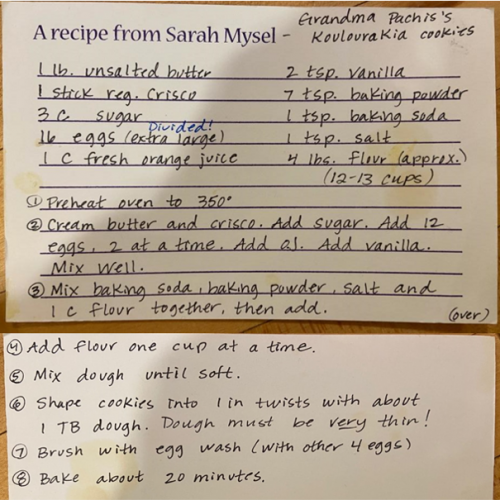 A recipe from Sarah Mysel - Grandma Pachis's
Koulourakia cookies
1 lb. unsalted butter
1 stick reg. Crisco
3 C sugar
Divided!
16 eggs (extra large)
1 C fresh orange juice
2 tsp. vanilla
7 tsp. baking powder
1 tsp. baking soda
1 tsp. salt
4 lbs. flour (approx.)
(12-13 cups)
① Preheat oven to 350°
② Cream butter and crisco. Add sugar. Add 12
eggs, 2 at a time. Add OJ. Add vanilla.
Mix well.
③ Mix baking soda, baking powder, salt and
1 C flour together, then add.
(over)
④ Add flour one cup at a time.
⑤ Mix dough until soft.
⑥ Shape cookies into 1 in twists with about
1 TB dough. Dough must be very thin!
⑦ Brush with egg wash (with other 4 eggs)
⑧ Bake about 20 minutes.